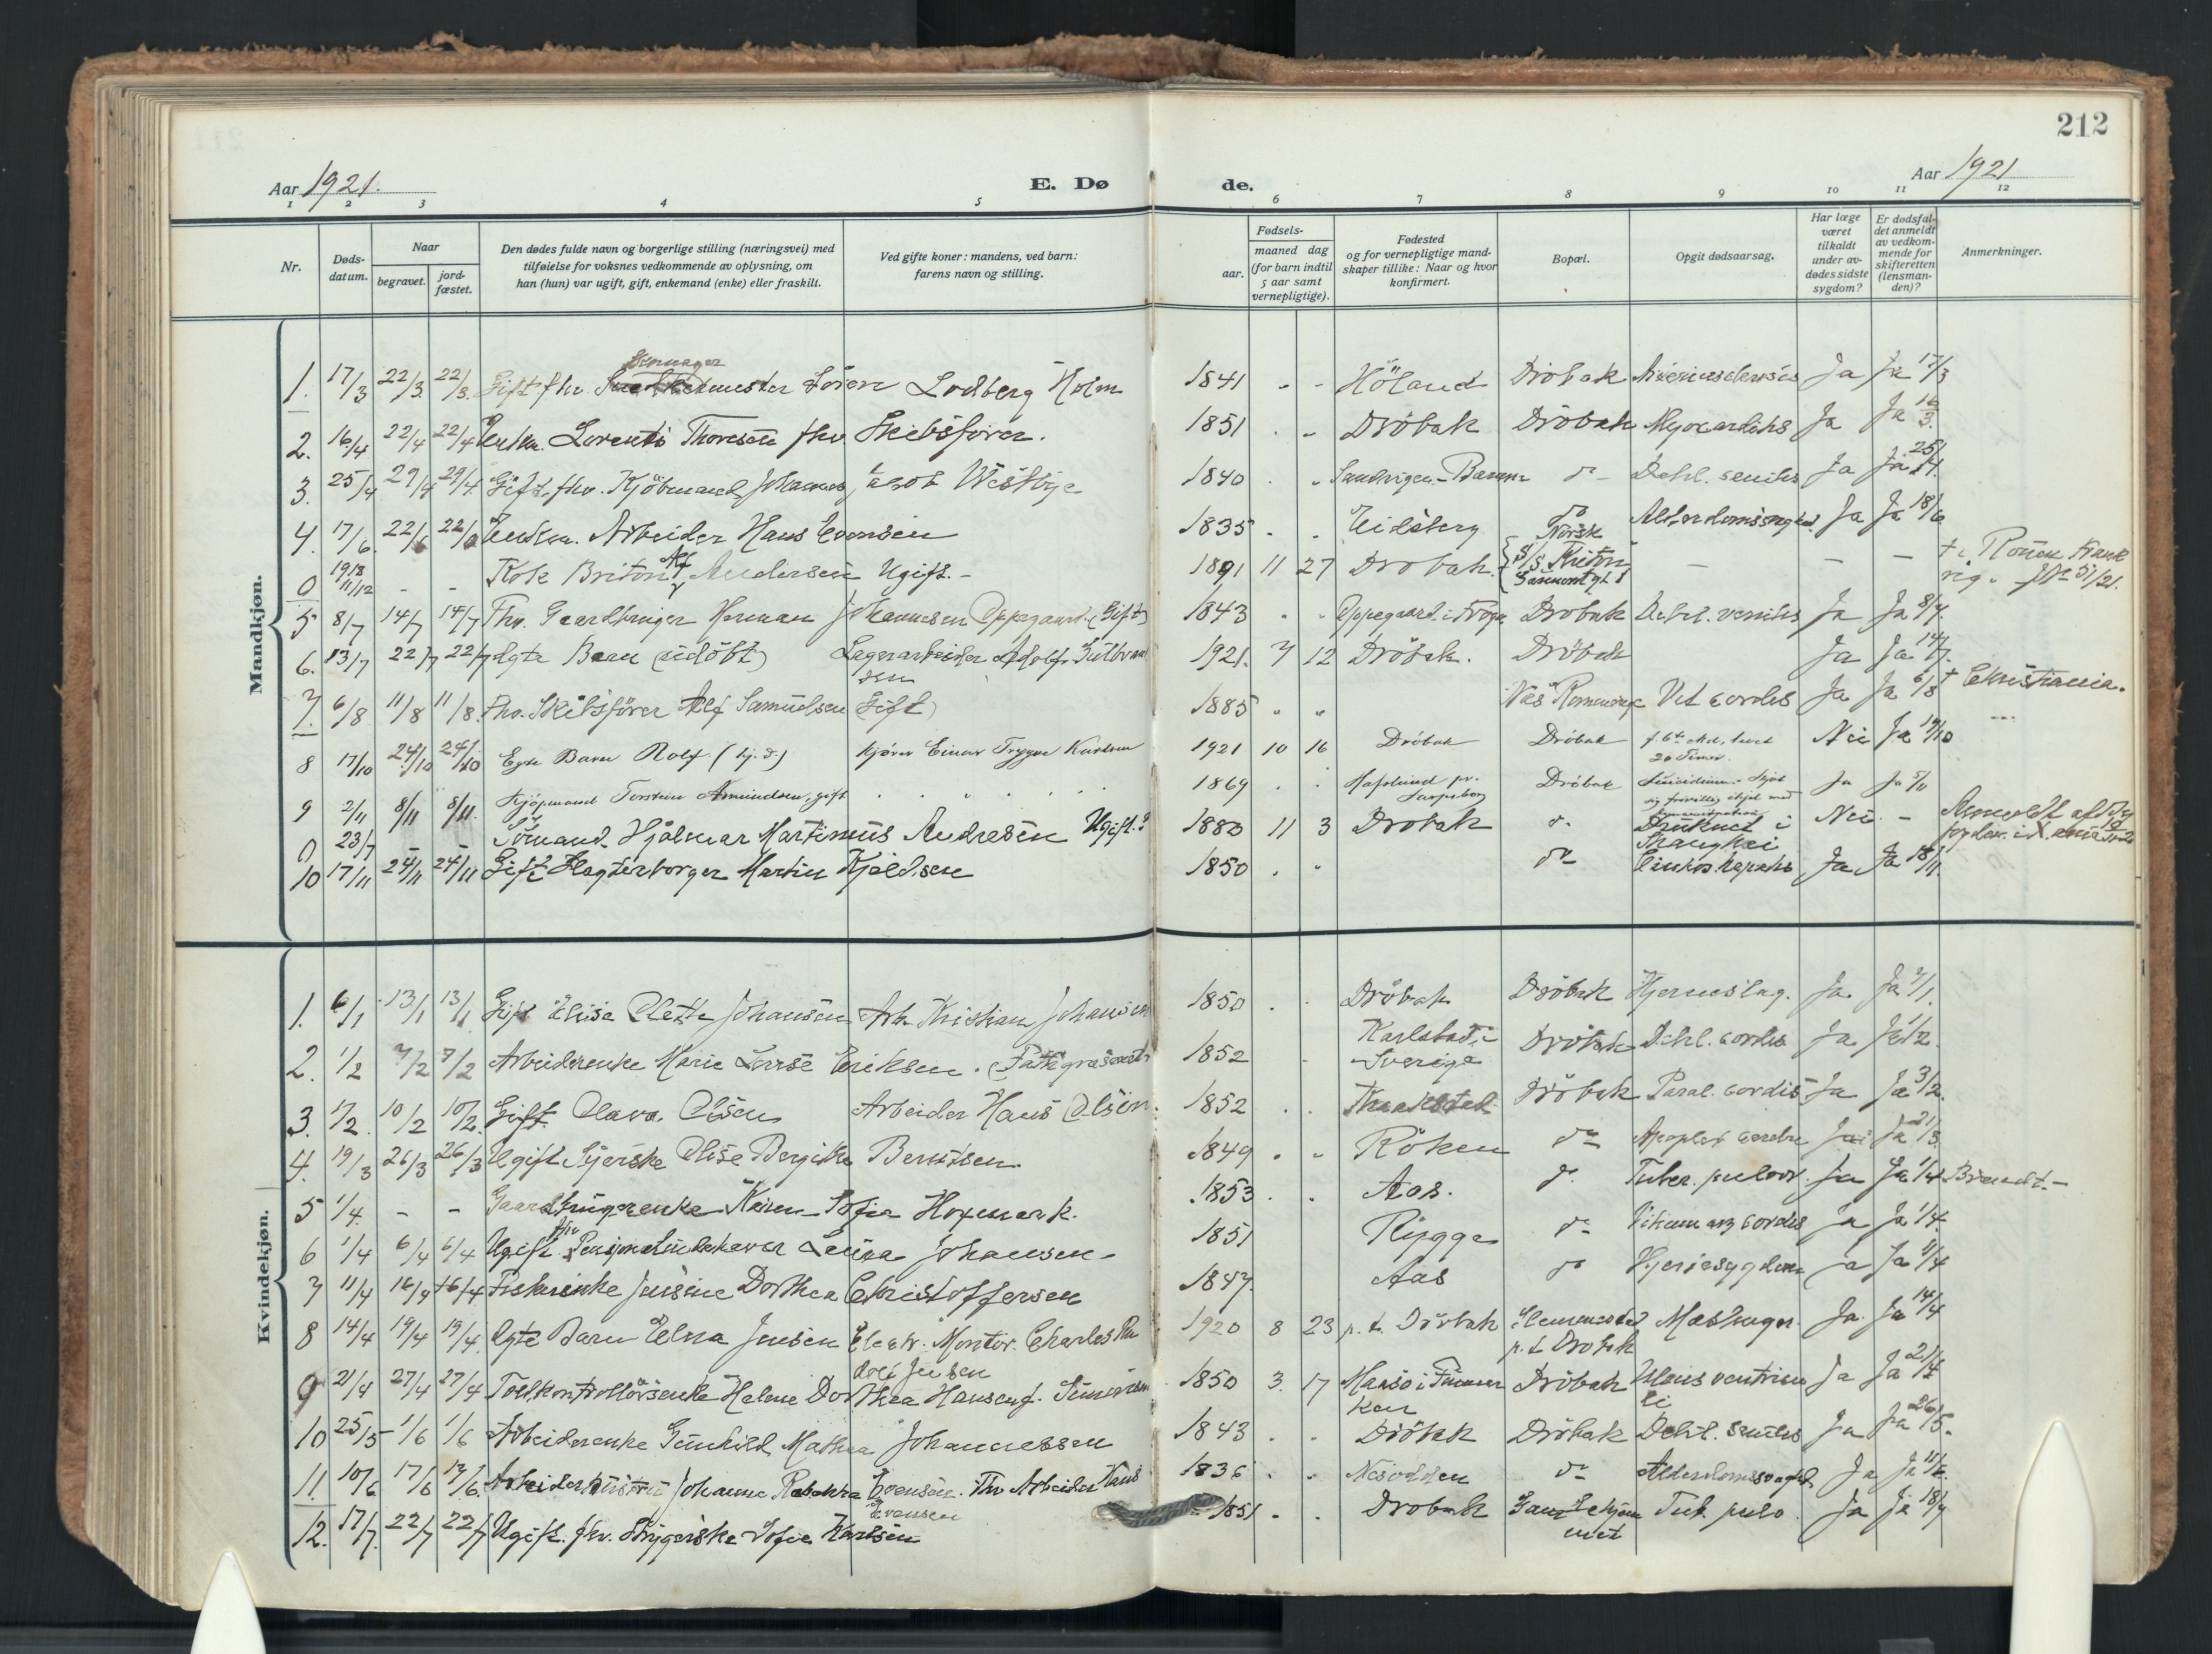 212
Aar 1921. E. Dø de. Aar 1921
1 2 3 4 5 6 7 8 9 10 11 12
Nr.
Døds-
datum.
Naar
begravet.
jord-
fæstet.
Den dødes fulde navn og borgerlige stilling (næringsvei) med
tilføielse for voksnes vedkommende av oplysning, om
han (hun) var ugift, gift, enkemand (enke) eller fraskilt.
Ved gifte koner: mandens, ved barn:
farens navn og stilling.
Fødsels-
aar.
maaned dag
(for barn indtil
5 aar samt
vernepligtige).
Fødested
og for vernepligtige mand-
skaper tillike: Naar og hvor
konfirmert.
Bopæl.
Opgit dødsaarsag.
Har læge
været
tilkaldt
under av-
dødes sidste
sygdom?
Er dødsfal-
det anmeldt
av vedkom-
mende for
skifteretten
(lensman-
den)?
Anmerkninger.
Mandkjøn.
1. 17/3 22/3 22/3. Gift fhv. Sören Lodberg Holm 1841 - - Höland Dröbak Ja Ja 17/3
2. 16/4 22/4 22/4 Enkm. Lorents Thoresen fhv. Skibsförer. 1851 . - Dröbak Dröbak Myocarditis Ja Ja
3. 25/4 29/4 29/4 Gift. fhv. Kjöbmand Johannes Jacob Westbye 1840 . - do - Debil. senilis Ja Ja 25/4.
4. 17/6. 22/6 22/6 Enkem. Arbeider Hans Evensen 1835 . . Eidsberg do Alderdomssvaghed. Ja Ja 18/6
0 1918 11/12 - - Kok Briton Alf Andersen Ugift. - 1891 11 27 Drobak. Norsk S/S - - - + i Rouen Frank
rig. 31/21.
5 8/7 14/7 14/7 Fhv. Gaardbruger Herman Johannesen Oppegaard. (Gift) 1843 . . Oppegaard i Frogn Drobak Debil. senilis Ja Ja 8/7.
6. 13/7 22/7 22/7 Ægte Barn (udöbt) Lagerarbeider Adolf 1921. 7 12 Dröbak. Dröbak Ja Ja 14/7.
7. 6/8 11/8 11/8. Fhv. Skibsförer Alf Samuelsen (Gift) 1885 " " Vit. cordis Ja Ja 6/8 + Christiania.
8 17/10 24/10 24/10 Egte Barn Rolf (hj. d) Einar Trygve Karlsen 1921 10 16 Dröbak Dröbak
20 Timer. Nei Ja 19/10
9 2/11 8/11 8/11. Kjøpmand Torstein Amundsen, gift 1869 . . Hafslund pr.
Sarpsborg Dröbak Ja Ja 5/11
0 23/7 - - Sömand. Hjalmar Martinius Andresen Ugift. ? 1880 11 3 Drobak do Druknet i
Shanghai Nei -
10 17/11 24/11 24/11 Gift Martin Kjeldsen 1850 . " do Ja Ja 18/11.
Kvindekjøn.
1. 6/1 13/1 13/1 Gift Elise Olette Johansen Arb. Kristian Johansen 1850 . . Dröbak Dröbak Hjerneslag. Ja Ja 7/1.
2. 1/2 7/2 7/2 Arbeiderenke Marie Lovise Eriksen. 1852 . Karlstad i
Sverige Drobak Debil. cordis Ja Ja 1/2.
3. 1/2. 10/2 10/2. Gift. Olava Olsen Arbeider Hans Olsen. 1852 . . Dröbak Paral. cordis Ja Ja 3/2.
4. 19/3 26/3 26/3 Ugift Syerske Elise Bergithe Berntsen. 1849 . " Röken do Apoplex cerebri Ja Ja 21/3
5 1/4. - - Gaardbrugerenke Karen Sofie Hoxmark. 1853 . . Aas. do Tuber. pulm. Ja Ja 1/4 Brændt. -
6 1/4 6/4 6/4 Ugift fhv. Laura Johansen - 1851 Rygge do Vitium org cordis Ja Ja 1/4.
7 11/4 16/4 16/4 Fiskerenke Jensine Dorthea Christoffersen 1847. Aas do Hjertesygdom Ja Ja 11/4
8 14/4 19/4 19/4. Ægte Barn Elna Jensen Elektr. Montör. Charles Ru
dolf Jensen 1920 8 23 p. t. Dröbak
p. t. Drobak Ja. Ja 14/4
9 21/4 27/4 27/4 Toldkontrollörsenke Helene Dorthea Hansen f. 1850 3. 17 Maasö i Finmar
ken Dröbak Ulcus ventricu
li Ja Ja 21/4
10 25/5 1/6 1/6 Arbeiderenke Gunhild Mathea Johannessen 1843 . . Dröbak Dröbak Debil. senilis Ja Ja 26/5.
11. 10/6 17/6 17/6. Arbeiderhustru Johanne Rebekka Evensen. Fhv Arbeider Hans
Evensen 1836 . . Nesodden do Alderdomssvaghed Ja Ja 11/6.
12. 17/7. 22/7 22/7 Ugift. fhv. Strygerske Sofie Karlsen 1851 . . Drobak Gamlehjem
met Tub. pulm. Ja Ja 18/7